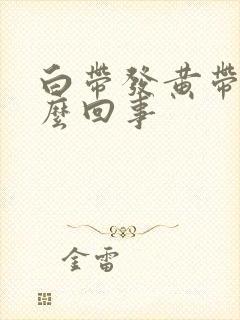 白帶發黃帶
麼回事
金雷